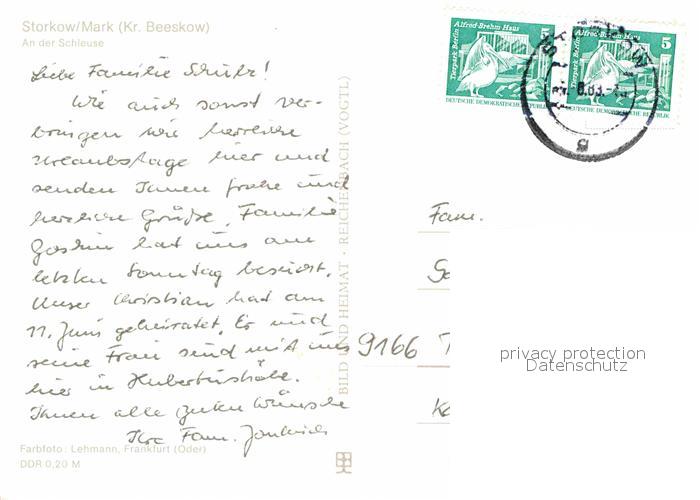 Storkow/Mark (Kr. Beeskow)
An der Schleuse
Liebe Familie
Wie auch sonst ver-
bringen wir herrliche
Urlaubstage hier und
senden Ihnen frohe und
herzliche Grüße. Familie
hat uns am
letzten Sonntag besucht.
Unser Christian hat am
11. Juni geheiratet. Er und
seine Frau sind mit uns
hier in Hubertushöhe.
Ihnen alle guten Wünsche
Ihre Fam.
Farbfoto: Lehmann, Frankfurt (Oder)
DDR 0,20 M
BILD UND HEIMAT · REICHENBACH (VOGTL)
Alfred-Brehm Haus
Tierpark Berlin
5
DEUTSCHE DEMOKRATISCHE REPUBLIK
Alfred-Brehm Haus
Tierpark Berlin
5
DEUTSCHE DEMOKRATISCHE REPUBLIK
Fam.
9166
privacy protection
Datenschutz